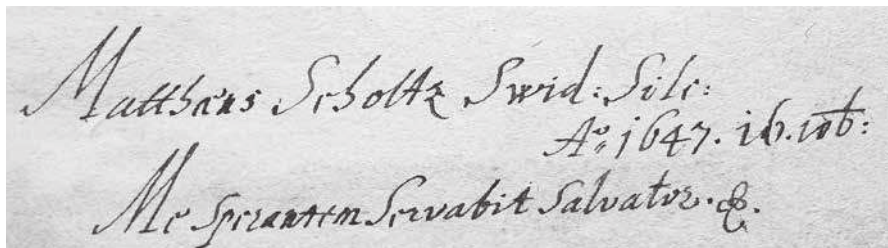 Matthæus Scholtz Swid: Sile:
Aº. 1647. 16. 
Me Sperantem Servabit Salvator. &.